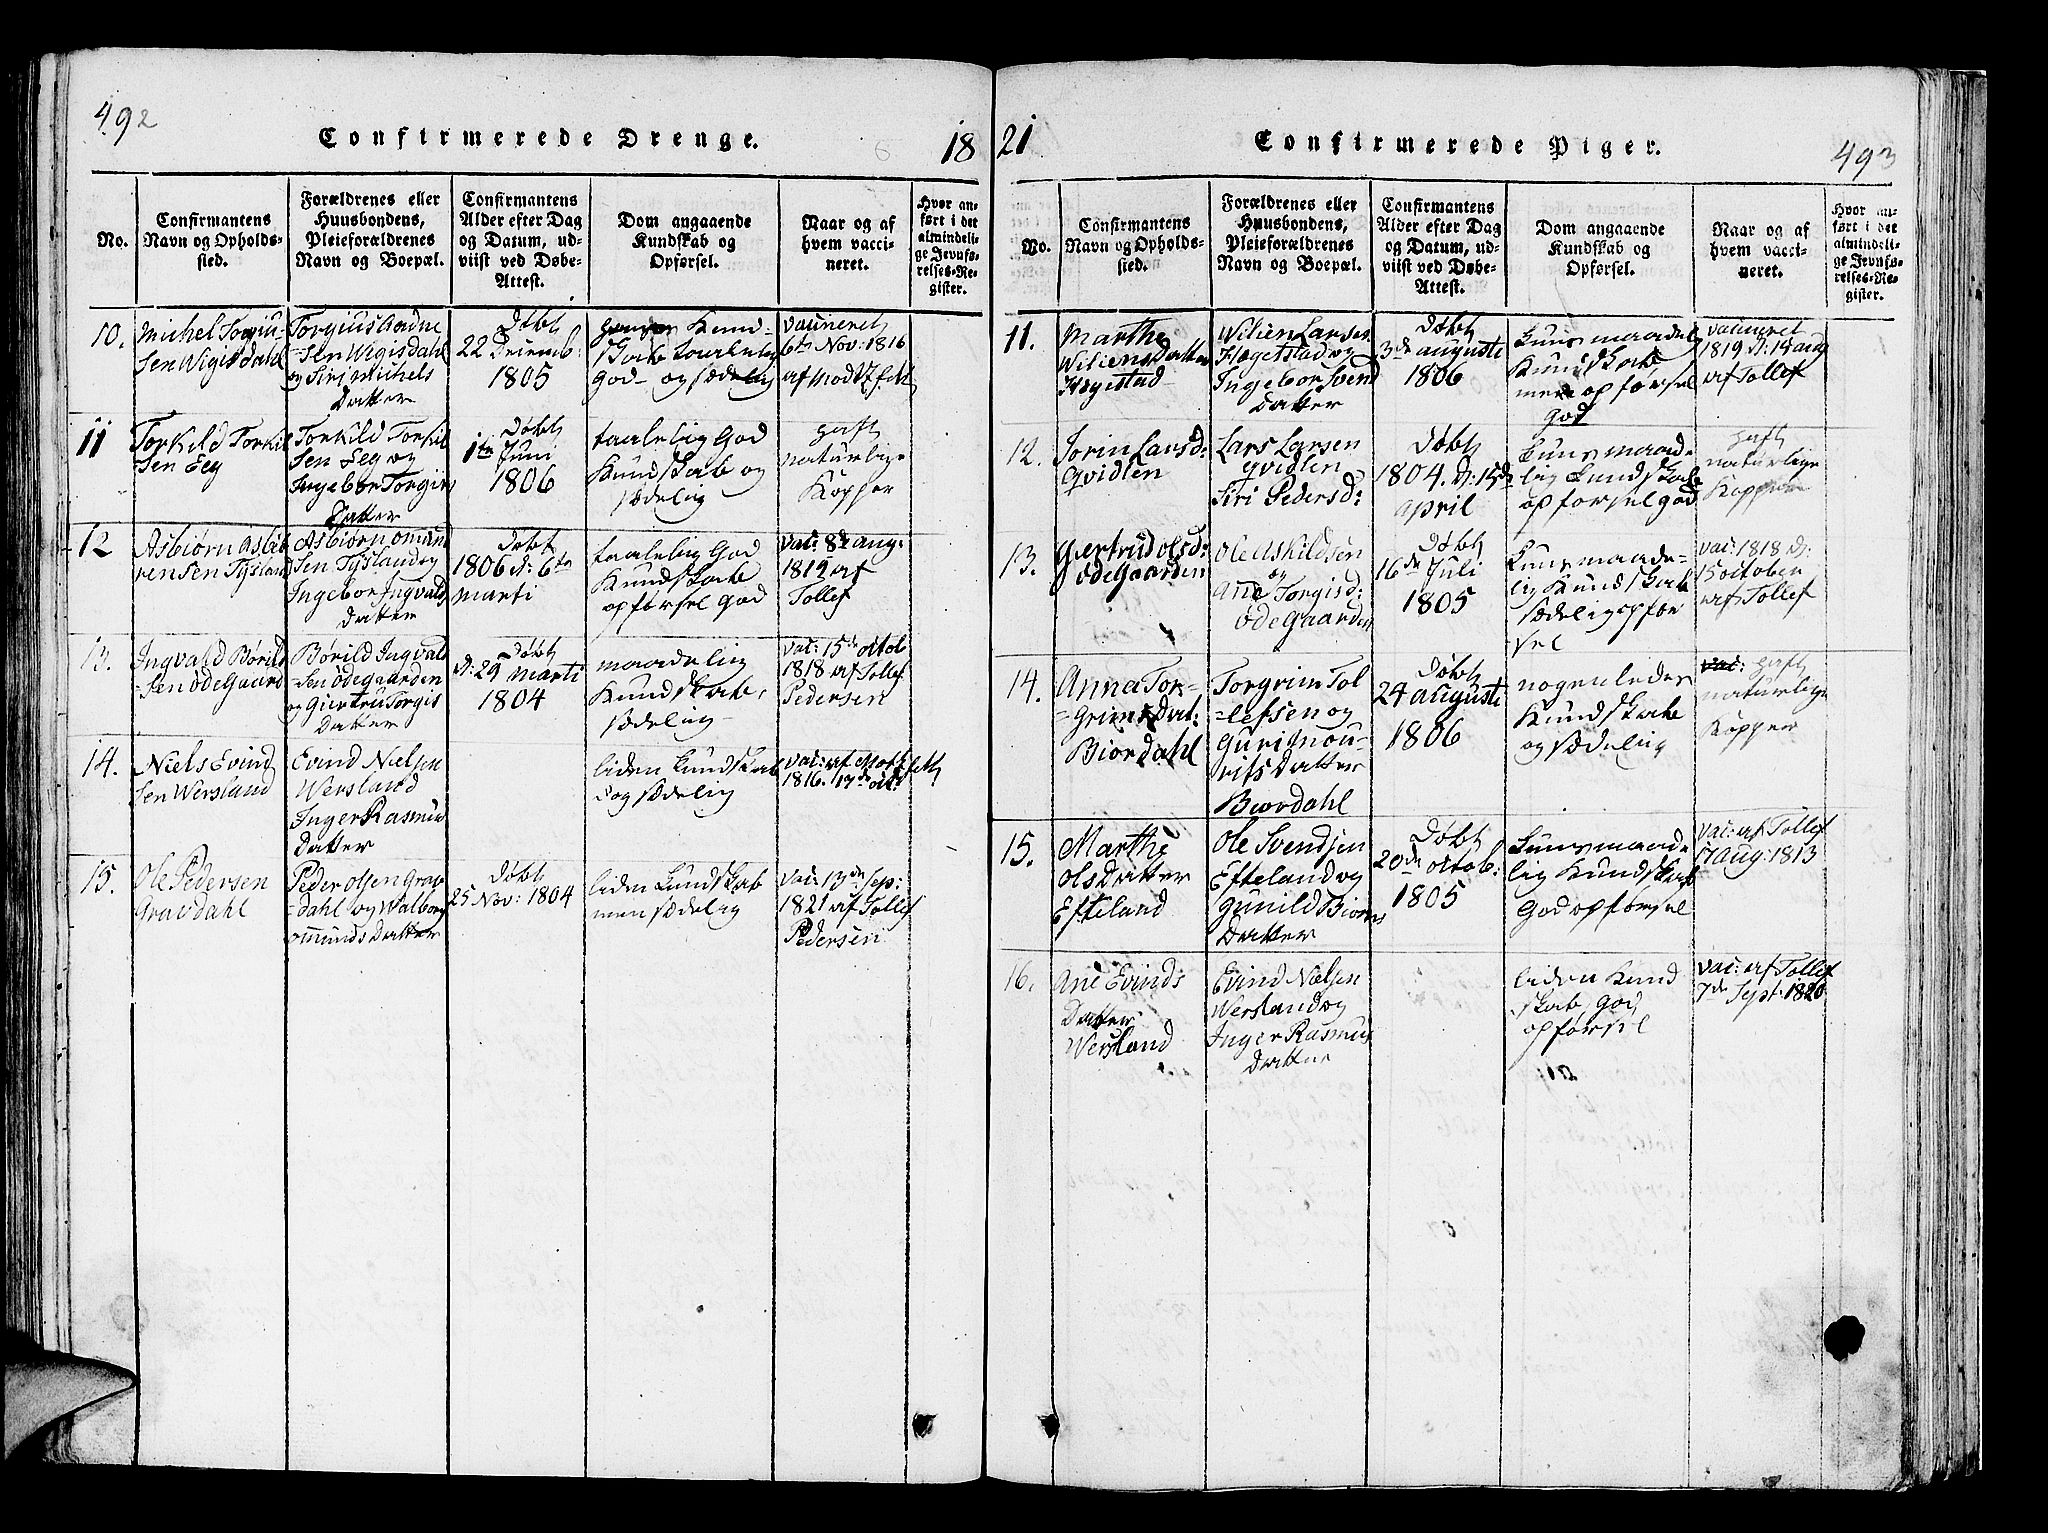 492
Confirmerede Drenge.
18
No.
Confirmantens
Navn og Opholds-
sted.
Forældrenes eller
Huusbondens,
Pleieforældrenes
Navn og Boepæl.
Confirmantens
Alder efter Dag
og Datum, ud-
viist ved Døbe-
Attest.
Dom angaaende
Kundskab og
Opførsel.
Naar og af
hvem vacci-
neret.
Hvor an-
ført i det
almindeli-
ge Jevnfø-
relses-Re-
gister.
10.
Michel Torgiu-
sen Wigisdahl
Torgius Aadne
=sen Wigisdahl
og Siri Michels
Datter
Døbt
22 Decemb:
1805
Kund-
skab taalelig
God og sædelig
vacineret
6te Nov: 1816
af Modtzfelt
11
Torkild Torkil
=sen Eeg
Torkild Torkil
sen Eeg og
Ingebor Torgirs
Datter
Døbt
1te Juni
1806
taalelig God
Kundskab og
sædelig
haft
naturlige
Kopper
12
Asbiørn Asbiø
rensen Tysland
Asbiørn Omund
sen Tysland og
Ingebor Ingvalds
Datter
Døbt
1806 d: 6te
Marti
taalelig God
Kundskab
opførsel God
Vac: 8de aug:
1819 af
Tollef
13.
Ingvald Børild
=sen Ødegaard
Børild Ingvald
=sen Ødegaarden
og Giertru Torgis
Datter
Døbt
d: 29 Marti
1804
maadelig
Kundskab,
sædelig
Vac: 15de octob
1818 af Tollef
Pedersen
14.
Niels Evind
sen Wersland
Evind Nielsen
Wersland
Inger Rasmus
Datter
liden Kundskab
og sædelig
Vac: af Motzfelth
1816. 17de oct:
15.
Ole Pedersen
Gravdahl
Peder Olsen Grav
=dahl og Walborg
Ommunds Datter
Døbt
25 Nov: 1804
liden Kundskab
men sædelig
Vac: 13de Sep:
1821 af Tollef
Pedersen
21
Confirmerede Piger.
493
No.
Confirmantens
Navn og Opholds-
sted.
Forældrenes eller
Huusbondens,
Pleieforældrenes
Navn og Boepæl.
Confirmantens
Alder efter Dag
og Datum, ud-
viist ved Døbe-
Attest.
Dom angaaende
Kundskab og
Opførsel.
Naar og af
hvem vacci-
neret.
Hvor an-
ført i det
almindeli-
ge Jevnfø-
relses-Re-
gister.
11.
Marthe
Wiliens Datter
Høgestad
Wilien Larsen
Høgelstad og
Ingebor Svend
Datter
Døbt
3de augusti
1806
Kuns maadel
Kundskab
men opførsel
God
vacineret
1819 d: 14 aug
af Tollef
12.
Sørin Larsd:
Qvidlen
Lars Larsen
Qvidlen
Siri Pedersd:
Døbt
1804. d: 15de
April
Kuns maade
lig Kundskab
opførsel god
haft
naturlige
Kopper
13.
Giertrud Olsd:
Ødegaarden
Ole Askildsen
og
Ane Torgisd:
Ødegaarden
Døbt
16de Juli
1805
Kuns maade-
lig Kundskab
sædelig opfør
sel
Vac: 1818 d:
15 octoben
af Tollef
14.
Anna Tor-
=grims Dat:
Biordahl
Torgrim Tol
=lefsen og
Guri Gnou-
rits Datter
Biordahl
Døbt
24 augusti
1806
nogenledes
Kundskab
og sædelig
haft
naturlige
Kopper
15.
Marthe
Ols Datter
Efteland
Ole Svendsen
Efteland og
Gunild Biørns
Datter
Døbt
20de octob:
1805
Kuns maade-
lig Kundskab
God opførsel
Vac: af Tollef
17 Aug: 1813
16.
Ane Evinds
Datter
Wersland
Evind Nielsen
Wersland og
Inger Rasmus
Datter
liden Kund
skab, God
opførsel
Vac: af Tollef
7de Sept: 1820